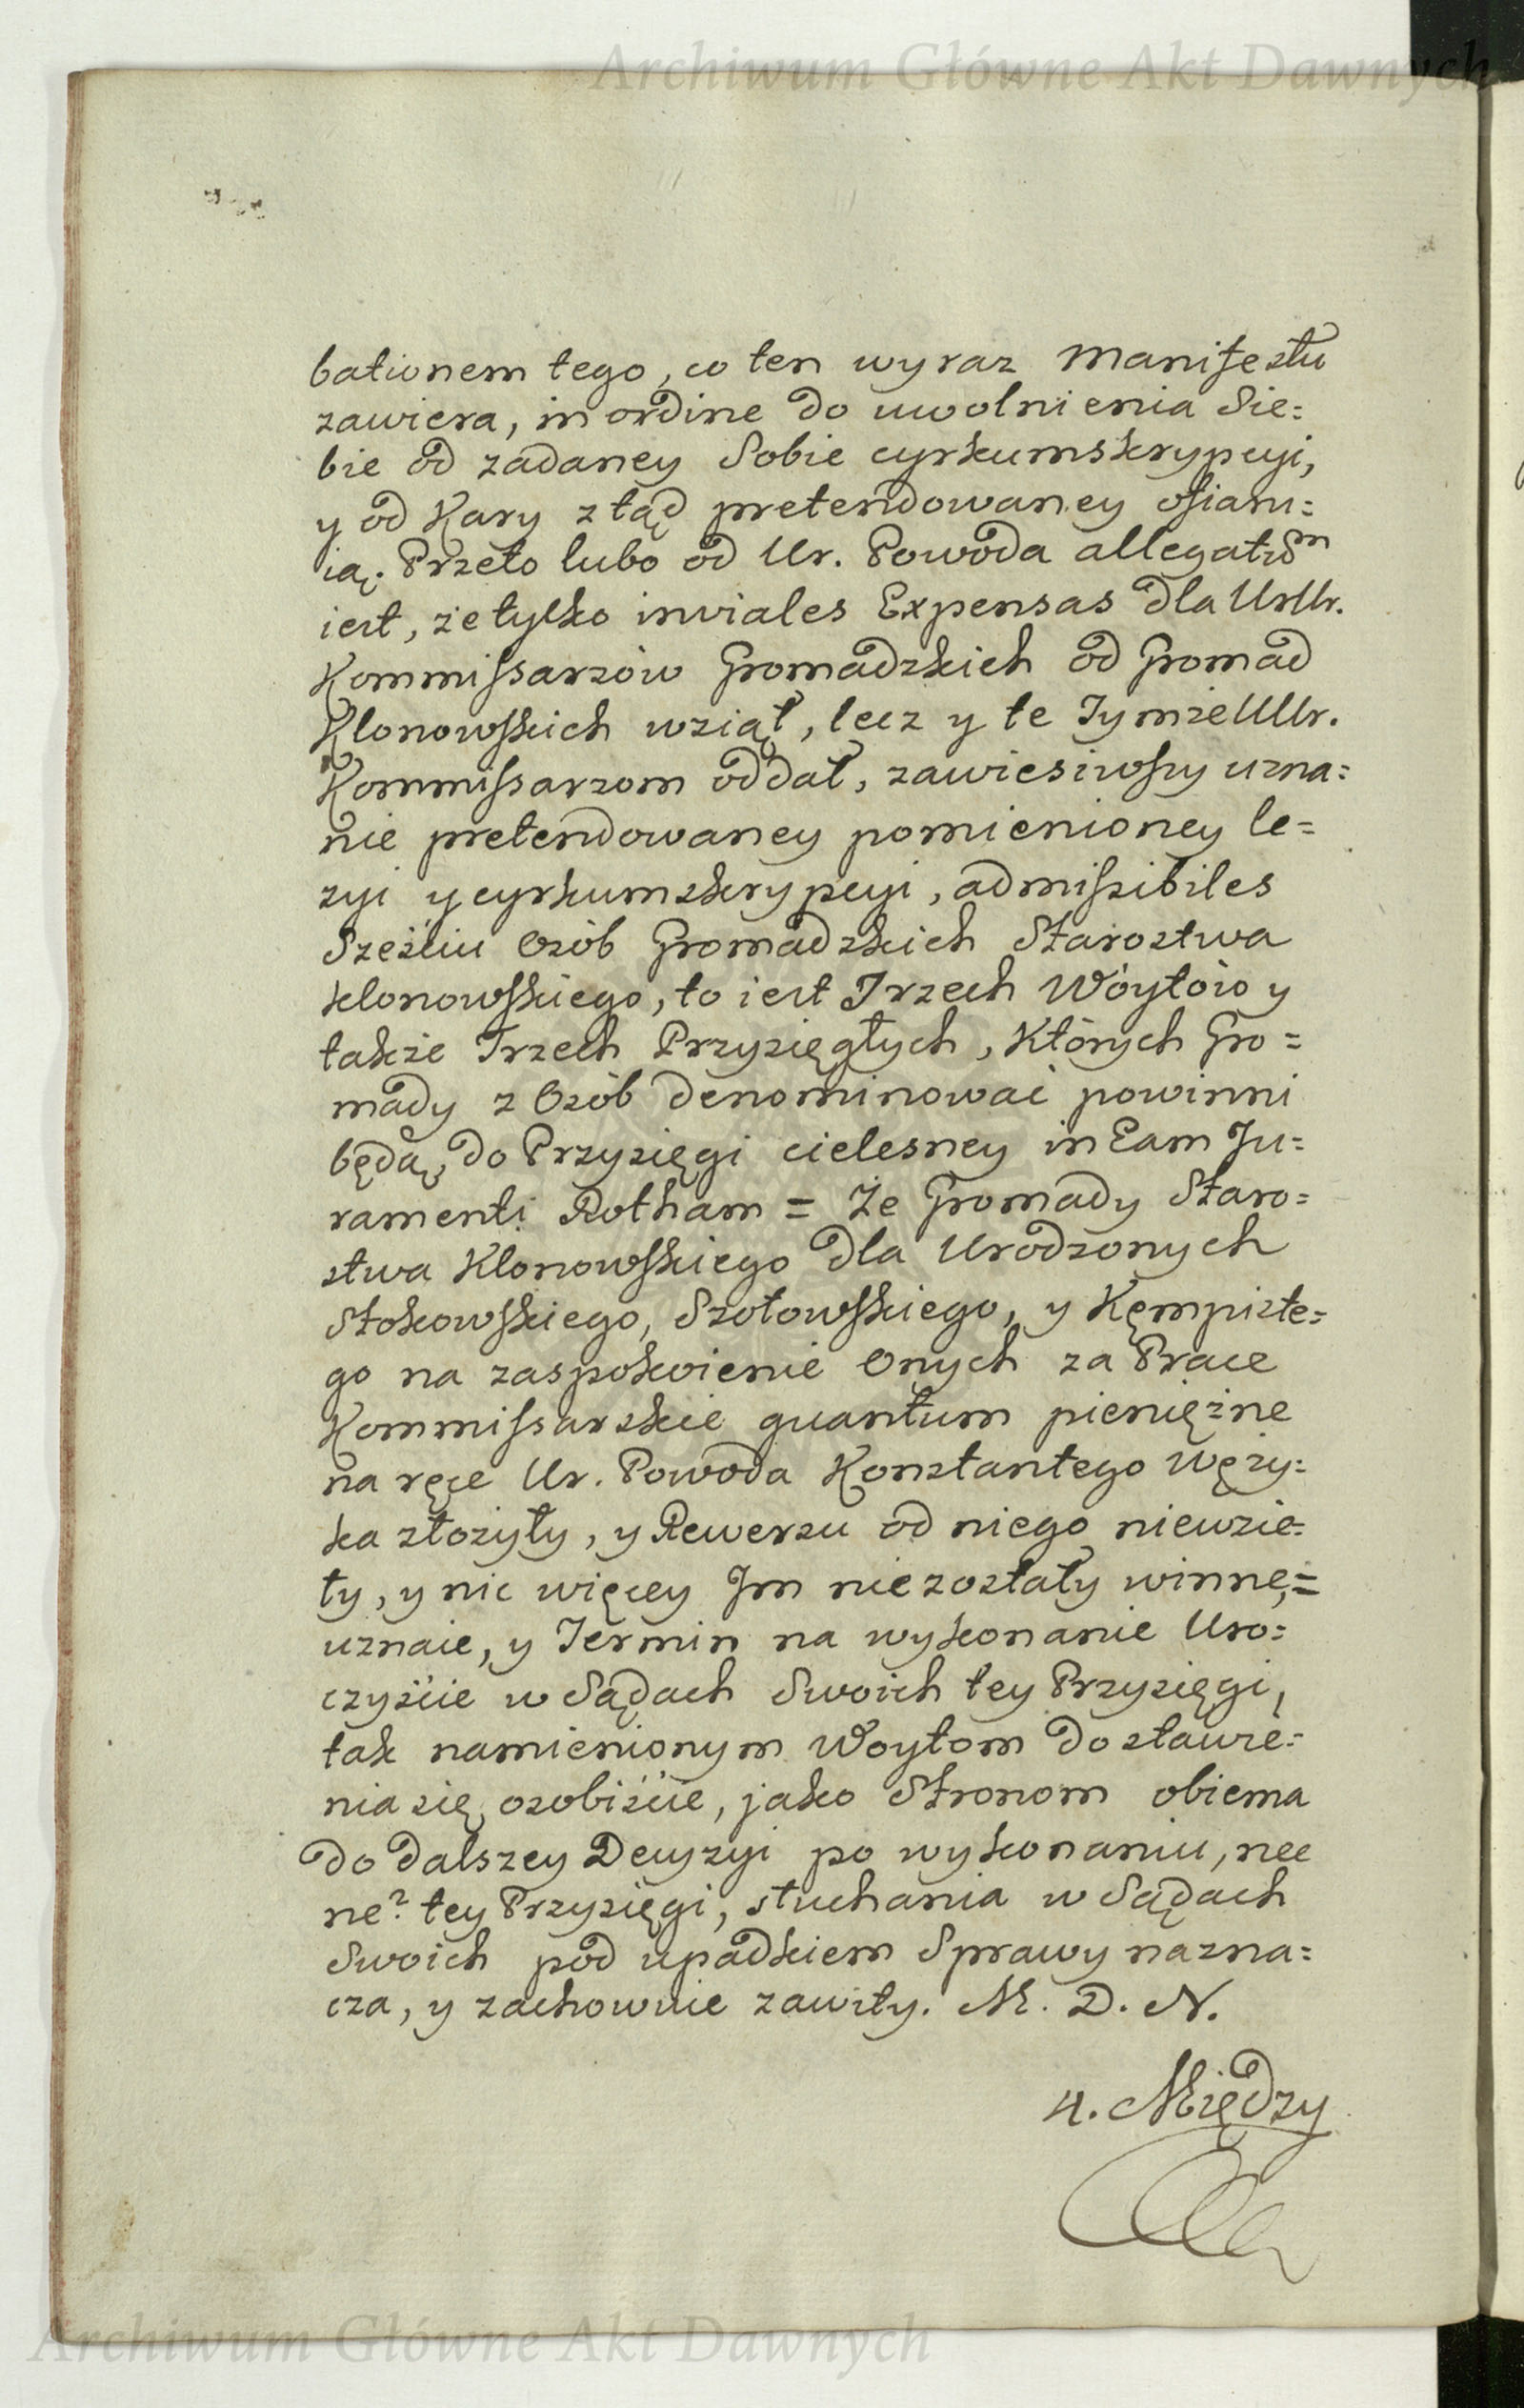 Archiwum Główne Akt Dawnych
bationem tego, co ten wyraz Manifestu
zawiera, in ordine do uwolnienia Sie=
bie od zadaney Sobie cyrkumskrypcyi,
y od Kary ztąd pretendowaney ofiaru=
ią. Przeto lubo od Ur. Powoda allegatum
iest, że tylko inviales Expensas dla UrUr.
Kommissarzów Gromadzkich od Gromad
Klonowskich wziął, lecz y te Tymże UUr.
Kommissarzom oddał, zawiesiwszy uzna=
nie pretendowaney pomienioney le=
zyi y cyrkumskrypcyi, admissibiles
Sześciu Osób Gromadzkich Starostwa
klonowskiego, to iest Trzech Wóytów y
także Trzech Przysięgłych, Których Gro=
mady z Osób denominować powinni
będą, do Przysięgi cielesney in Eam Ju=
ramenti Rotham = Że Gromady Staro=
stwa Klonowskiego dla Urodzonych
Stokowskiego, Szołowskiego, y Kępiste=
go na zaspokoienie Onych za Prace
Kommissarskie quantum pieniężne
na ręce Ur. Powoda Konstantego Węży=
ka złożyły, y Rewersu od niego niewzie=
ły, y nic więcey Im nie zostały winne,=
uznaie, y Termin na wykonanie Uro=
czyście w Sądach Swoich tey Przysięgi,
tak namienionym Woytom do stawie=
nia się osobiście, jako Stronom obiema
do dalszey Decyzyi po wykonaniu, nec
ne? tey Przysięgi, słuchania w Sądach
Swoich pod upadkiem Sprawy nazna=
cza, y zachowuie zawity. M. D. N.
4. Między
Archiwum Główne Akt Dawnych